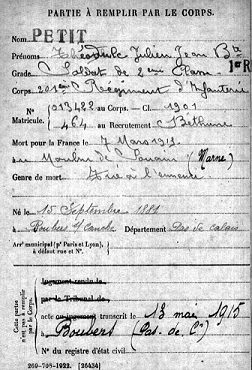 PARTIE À REMPLIR PAR LE CORPS.
Nom PETIT
Prénoms Théodule Julien Jean Bte
Grade Soldat de 2eme Classe 1er R
Corps 201e Régiment d'Infanterie
N° 013422 au Corps. — Cl. 1901
Matricule. 464 au Recrutement Béthune
Mort pour la France le 7 Mars 191
au Moulin de (Marne)
Genre de mort Tué à l'ennemi
Né le 15 Septembre 1881
à Boubers s/ Canche Département Pas de calais
Arrt municipal (pr Paris et Lyon),
à défaut rue et N°.
Cette partie
n'est pas à remplir
par le Corps.
Jugement rendu le
par le Tribunal de
acte ou jugement transcrit le 13 mai 1915
à Boubers (Pas. de Cs)
N° du registre d'état civil
269-708-1922. [26434]